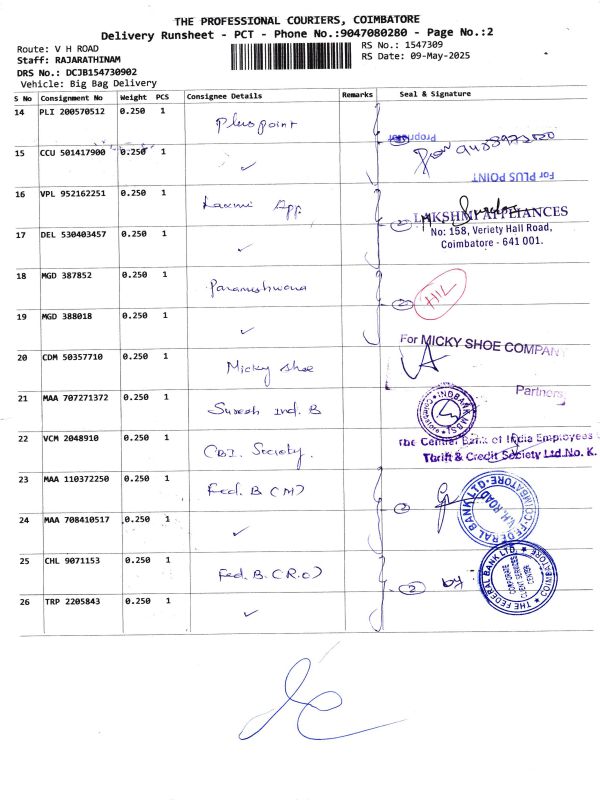 THE PROFESSIONAL COURIERS, COIMBATORE
Delivery Runsheet - PCT - Phone No.:9047080280 - Page No.:2
Route: V H ROAD
RS No.: 1547309
Staff: RAJARATHINAM
RS Date: 09-May-2025
DRS No.: DCJB154730902
Vehicle: Big Bag Delivery
S No Consignment No Weight PCS Consignee Details Remarks Seal & Signature
14 PLI 200570512 0.250 1 Plus point
Proprietor
9488973220
15 CCU 501417900 0.250 1 ✓
For PLUS POINT
16 VPL 952162251 0.250 1 Laxmi App. 2
LAKSHMI APPLIANCES
No: 158, Veriety Hall Road,
Coimbatore - 641 001.
17 DEL 530403457 0.250 1 ✓
18 MGD 387852 0.250 1 Parameshwara 2
19 MGD 388018 0.250 1 ✓
For MICKY SHOE COMPANY
20 CDM 50357710 0.250 1 Micky shoe
Partners
21 MAA 707271372 0.250 1 Suresh Ind. B
INDBANK MBSL
Coimbatore
22 VCM 2048910 0.250 1 CBI. Society.
The Central Bank of India Employees
Thrift & Credit Society Ltd. No. K.
23 MAA 110372250 0.250 1 Fed. B (M)
THE FEDERAL BANK LTD. COIMBATORE
V.H. ROAD
24 MAA 708410517 0.250 1 ✓ 2
25 CHL 9071153 0.250 1 Fed. B. (R.O) 2
THE FEDERAL BANK LTD. COIMBATORE
CORPORATE
CLIENT SERVICES
CENTER
26 TRP 2205843 0.250 1 ✓